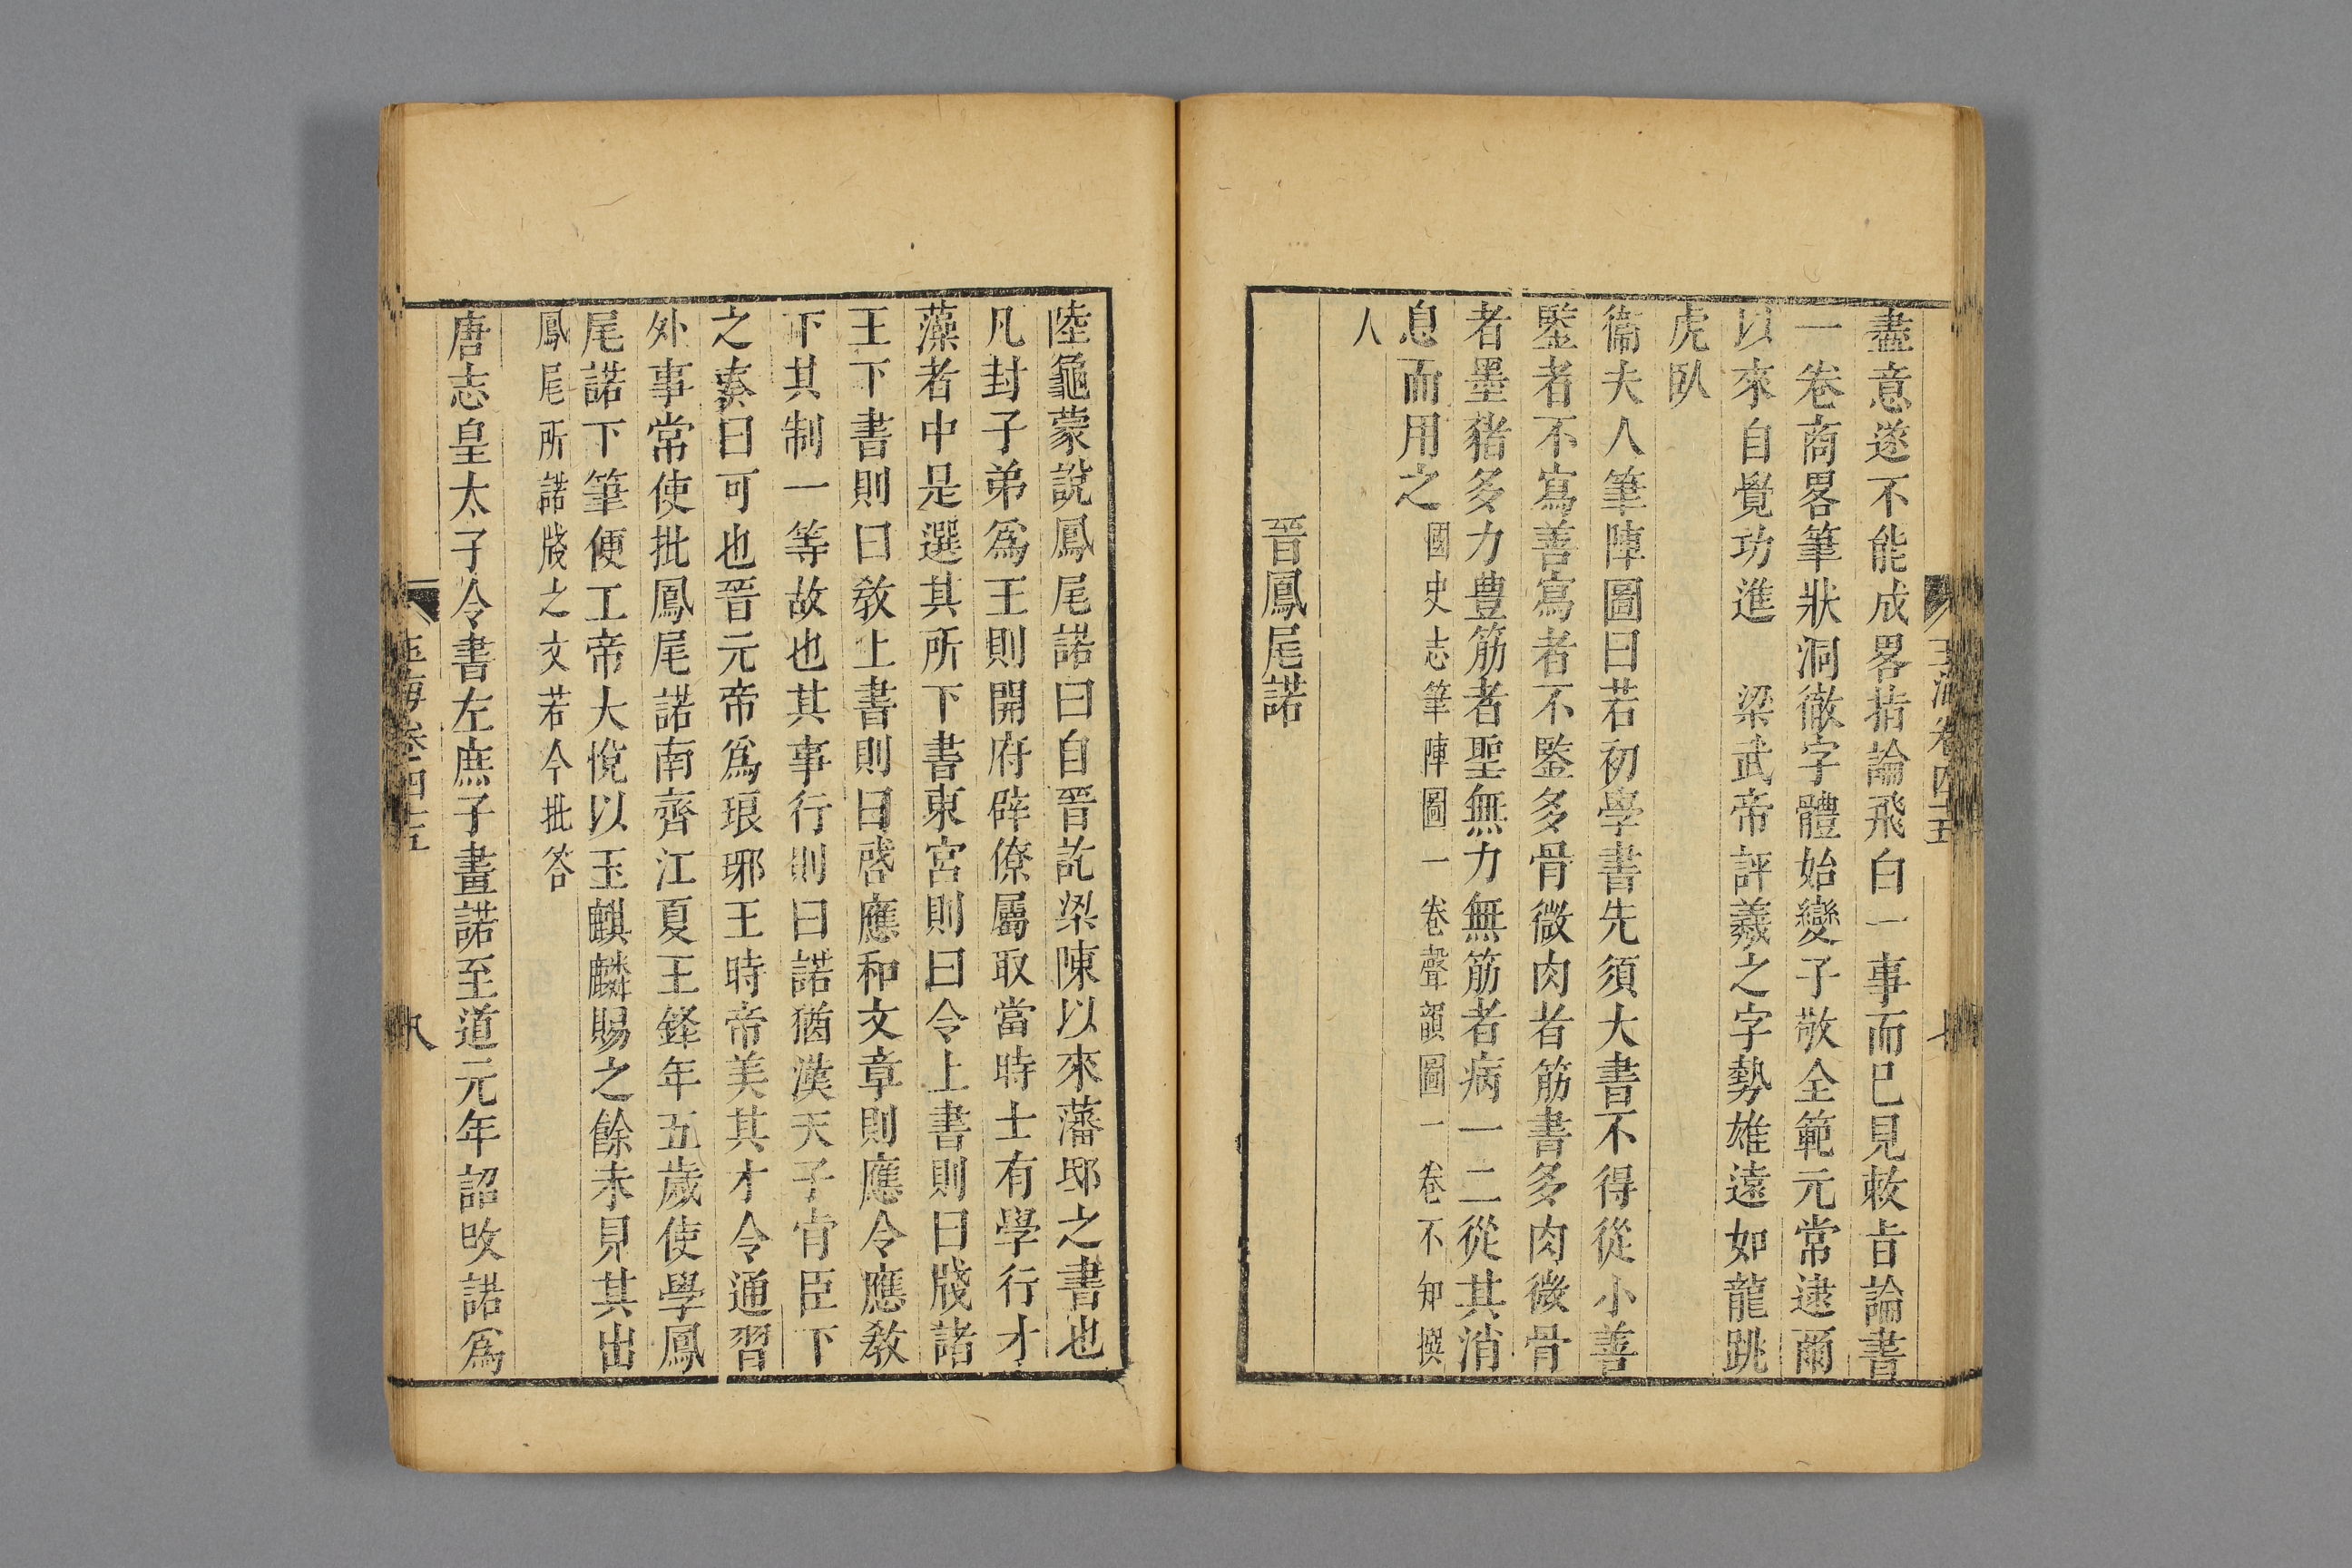 玉海卷四十五
七
盡意遂不能成畧指論飛白一事而巳見敕旨論書
一卷商畧筆狀洞徹字體始變子敬全範元常逮爾
以來自覺功進　梁武帝評羲之字勢雄遠如龍跳
虎臥
衞夫人筆陣圖曰若初學書先須大書不得從小善
鑒者不寫善寫者不鑒多骨微肉者筋書多肉微骨
者墨猪多力豊筋者聖無力無筋者病一二從其消
息而用之國史志筆陣圖一卷聲韻圖一卷不知撰
人
晉鳳尾諾
陸龜蒙說鳳尾諾曰自晉訖梁陳以來藩邸之書也
凡封子弟爲王則開府辟僚屬取當時士有學行才
藻者中是選其所下書東宮則曰令上書則曰牋諸
王下書則曰敎上書則曰啓應和文章則應令應敎
下其制一等故也其事行則曰諾猶漢天子肯臣下
之奏曰可也晉元帝爲琅邪王時帝美其才令通習
外事常使批鳳尾諾南齊江夏王鋒年五歲使學鳳
尾諾下筆便工帝大悅以玉麒麟賜之餘未見其出
鳳尾所諾牋之文若今批答
唐志皇太子令書左庶子畫諾至道元年詔改諾爲
玉海卷四十五
八